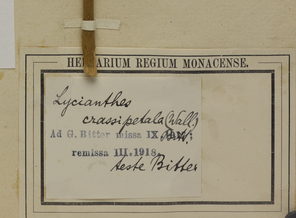 HERBARIUM REGIUM MONACENSE.
Lycianthes
crassipetala (Wall.)
Ad G. Bitter missa IX.
remissa III.1918.
teste Bitter